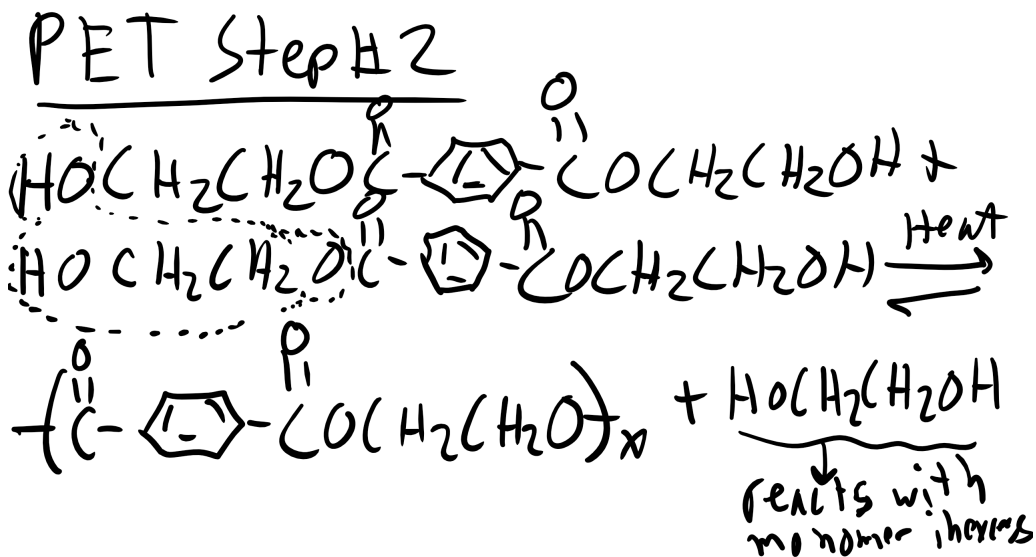 PET Step #2
O O
HOCH₂CH₂OC - - COCH₂CH₂OH +
O O
HOCH₂CH₂OC - - COCH₂CH₂OH Heat
O O
( C - - COCH₂CH₂O )x + HOCH₂CH₂OH
reacts with
monomer